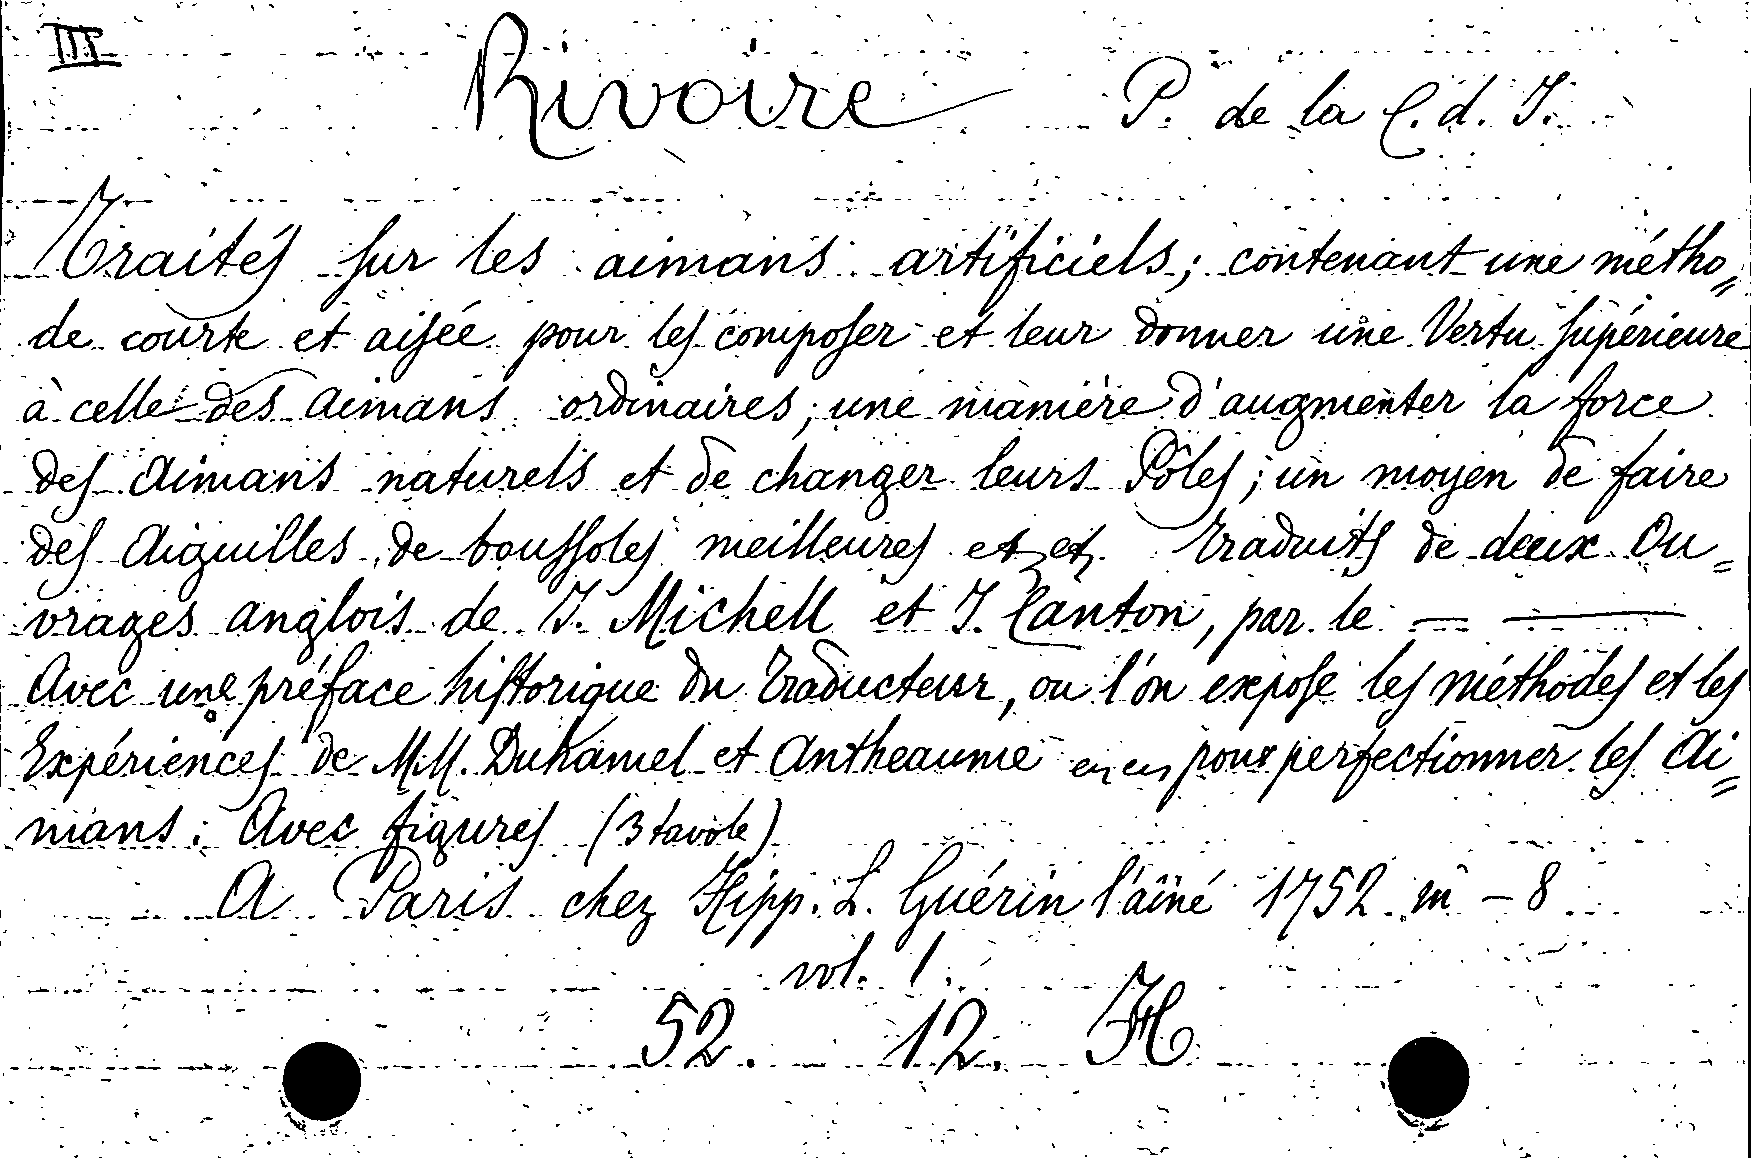 III
Rivoire P. de la C. d. J.
Traités sur les aimans artificiels; contenant une métho„
de courte et aisée pour les composer et leur donner une Vertu supérieure
à celle des aimans ordinaires; une manière d'augmenter la force
des aimans naturels et de changer leurs Pôles; un moyen de faire
des Aiguilles de boussoles meilleures et et. traduits de deux Ou„
vrages anglois de J. Michell et J. Canton, par le — ——
Avec une préface historique du traducteur, ou l'on expose les méthodes et les
Expériences de M.M. Duhamel et Antheaume pour perfectionner les Ai„
mans: Avec figures (3 tavole)
A Paris chez Hipp. L. Guérin l'aîné 1752 in - 8
vol. 1.
52. 12. H